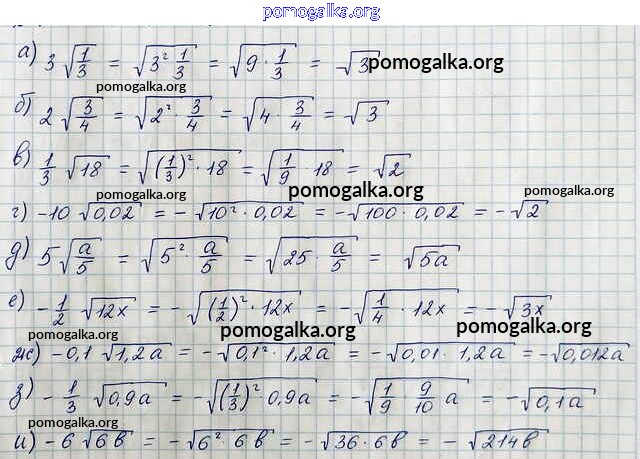 pomogalka.org
а) 3 √(1/3) = √(3² 1/3) = √(9 · 1/3) = √3 pomogalka.org
pomogalka.org
б) 2 √(3/4) = √(2² · 3/4) = √(4 · 3/4) = √3
в) 1/3 √18 = √((1/3)² · 18) = √(1/9 · 18) = √2
pomogalka.org pomogalka.org pomogalka.org
г) -10 √0,02 = -√(10² · 0,02) = -√(100 · 0,02) = -√2
д) 5 √(a/5) = √(5² · a/5) = √(25 · a/5) = √5a
е) -1/2 √12x = -√((1/2)² · 12x) = -√(1/4 · 12x) = -√3x
pomogalka.org pomogalka.org pomogalka.org
ж) -0,1 √1,2a = -√(0,1² · 1,2a) = -√(0,01 · 1,2a) = -√0,012a
з) -1/3 √0,9a = -√((1/3)² 0,9a) = -√(1/9 9/10 a) = -√0,1a
pomogalka.org
и) -6 √6b = -√(6² · 6b) = -√(36 · 6b) = -√214b